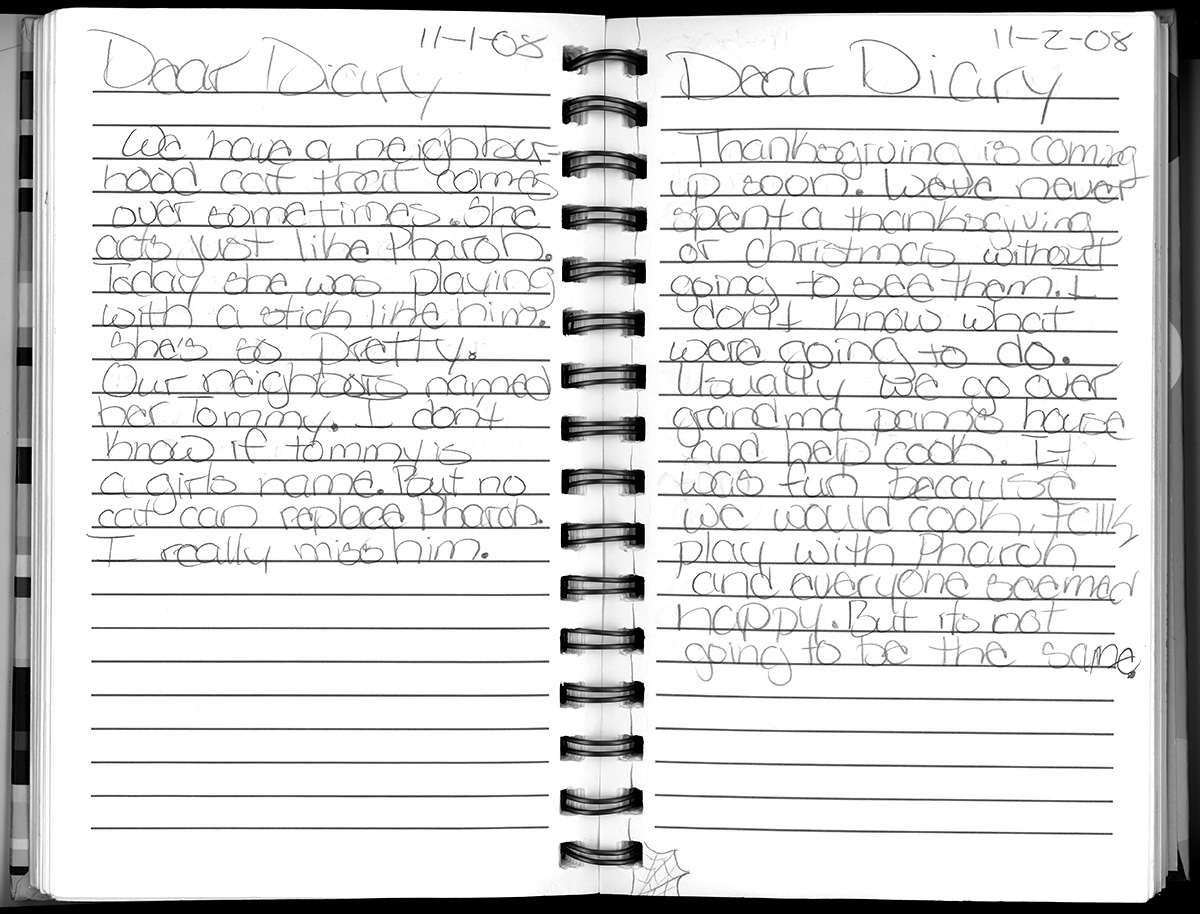 11-1-08
Dear Diary
We have a neighbour-
hood cat that comes
over sometimes. She
acts just like Pharoh.
Today she was playing
with a stick like him.
She's so pretty.
Our neighbors named
her Tommy. I don't
know if tommy is
a girls name. But no
cat can replace Pharoh.
I really miss him.
11-2-08
Dear Diary
Thanksgiving is coming
up soon. We've never
spent a thanksgiving
or christmas without
going to see them. I
don't know what
were going to do.
Usually we go over
grandma pam's house
and help cook. It
was fun because
we would cook, talk,
play with Pharoh
and everyone seemed
happy. But its not
going to be the same.